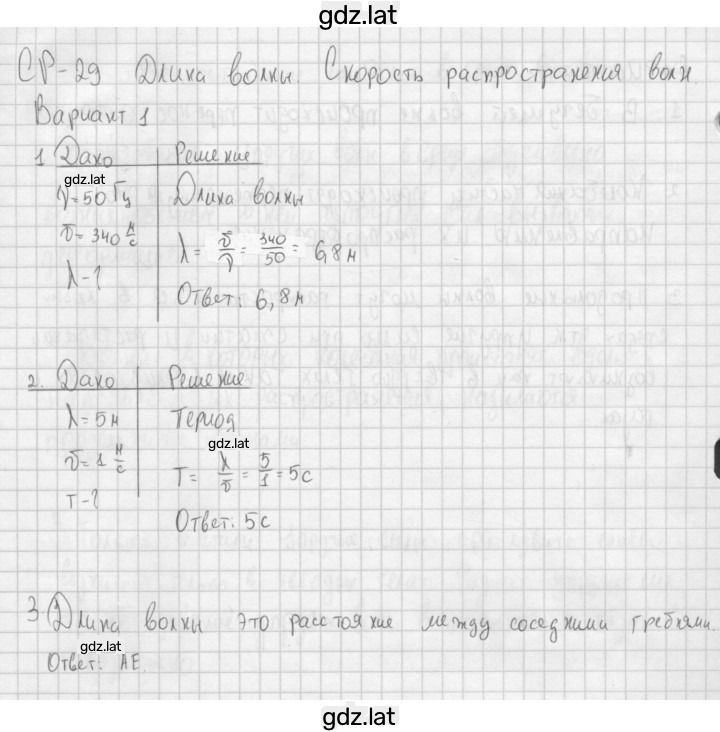 gdz.lat
СР-29 Длина волны. Скорость распространения волн.
Вариант 1
1 Дано Решение
gdz.lat
ν=50 Гц Длина волны
υ=340 м/с λ= υ/ν = 340/50 = 6,8м
λ-?
Ответ: 6,8м
2. Дано Решение
λ=5м Период
gdz.lat
υ=1 м/с T= λ/υ = 5/1 = 5с
T-?
Ответ: 5с
3 Длина волны это расстояние между соседними гребнями.
gdz.lat
Ответ: АЕ.
gdz.lat